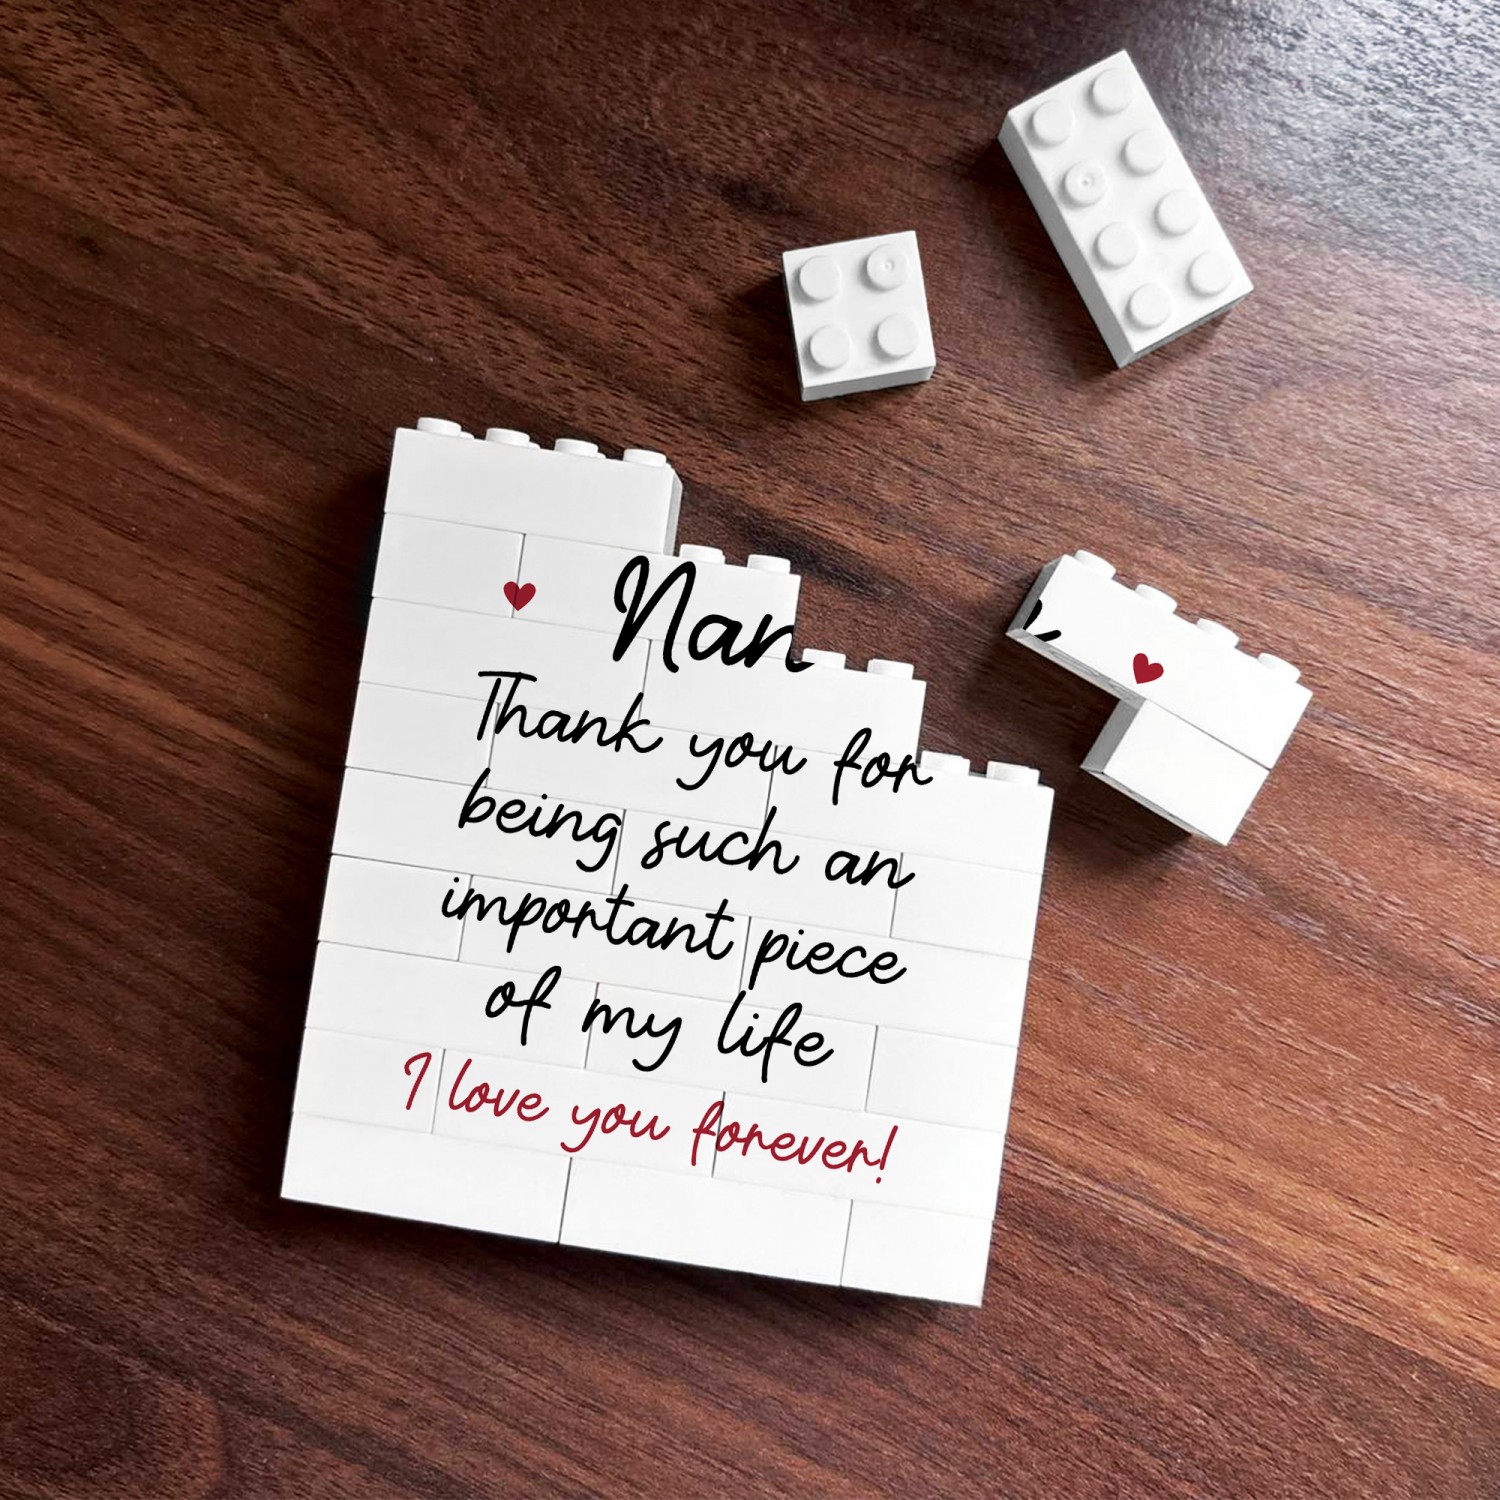 Nan
Thank you for
being such an
important piece
of my life
I love you forever!